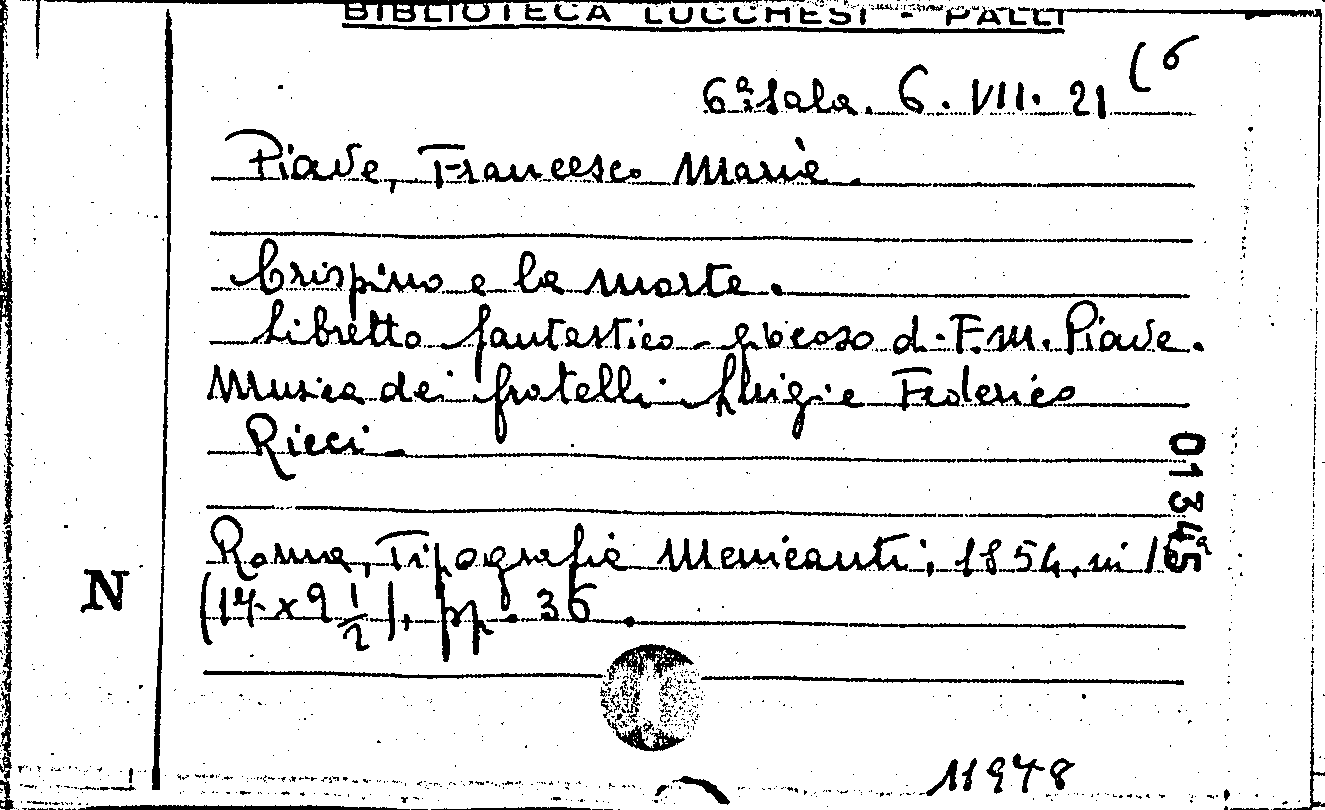 BIBLIOTECA LUCCHESI - PALLI
6ª Sala. 6. VII. 21 (6
Piave, Francesco Maria.
Crispino e la morte.
Libretto fantastico-giocoso di F. M. Piave.
Musica dei fratelli Luigi e Federico
Ricci.
Roma, Tipografia Menicanti, 1854, in 16ª
(14 x 9 1/2), pp. 36.
01345
N
11978